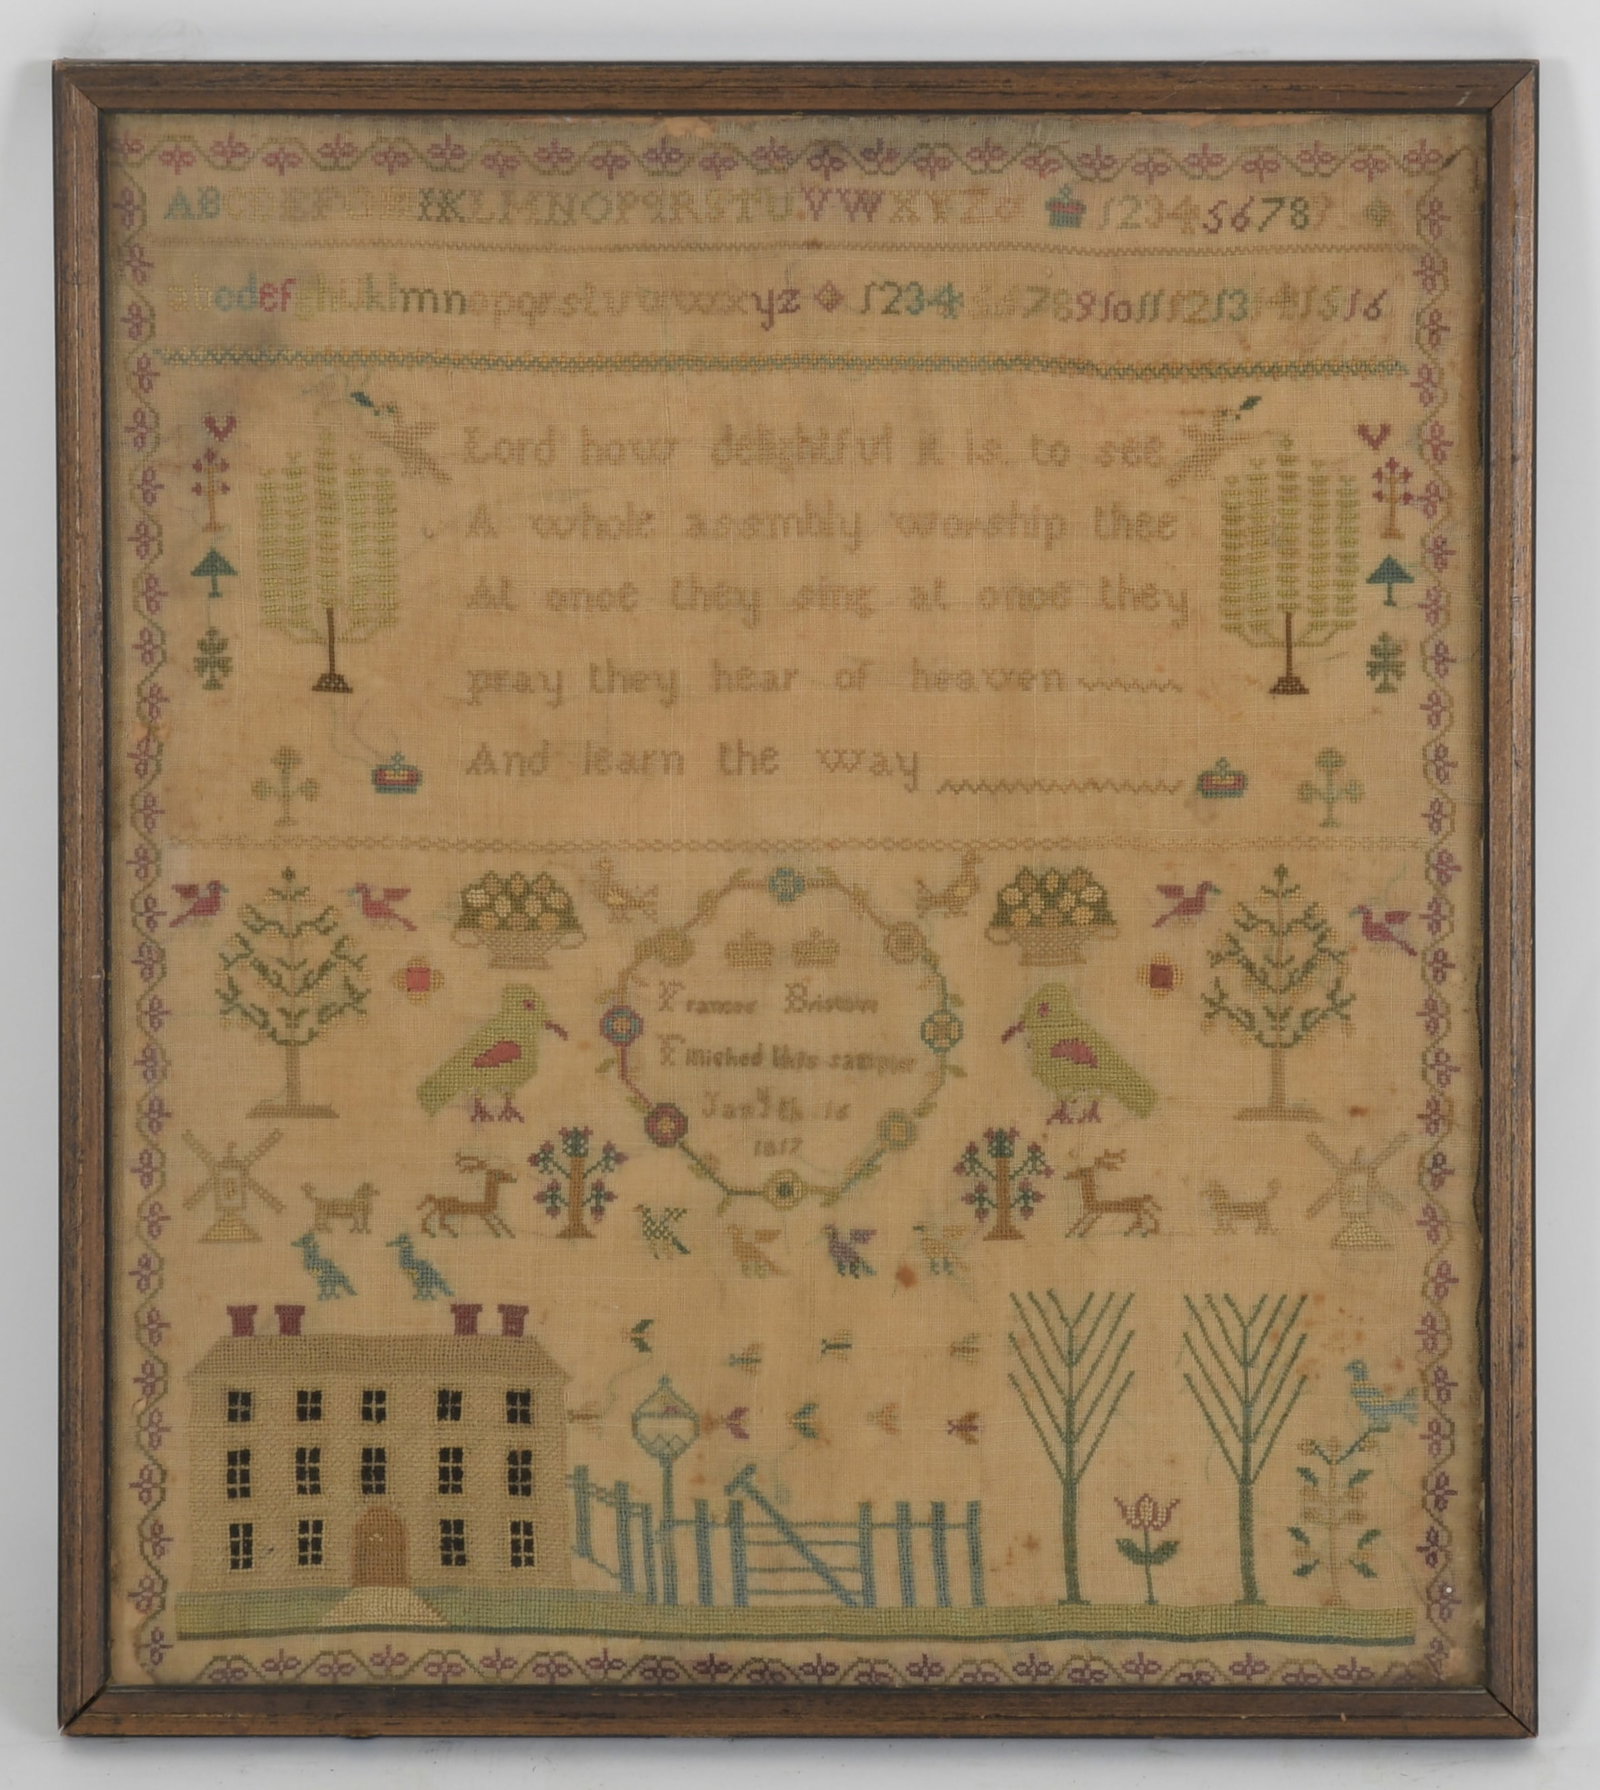 ABCDEFGHIKLMNOPQRSTUVWXYZ & 123456789
abcdefghijklmnopqrstuvwxyz 12345678910111213141516
Lord how delightful it is to see
A whole assmbly worship thee
At once they sing at once they
pray they hear of heaven
And learn the way
Frances Bristow
Finished this sampler
Jany th 16
1817